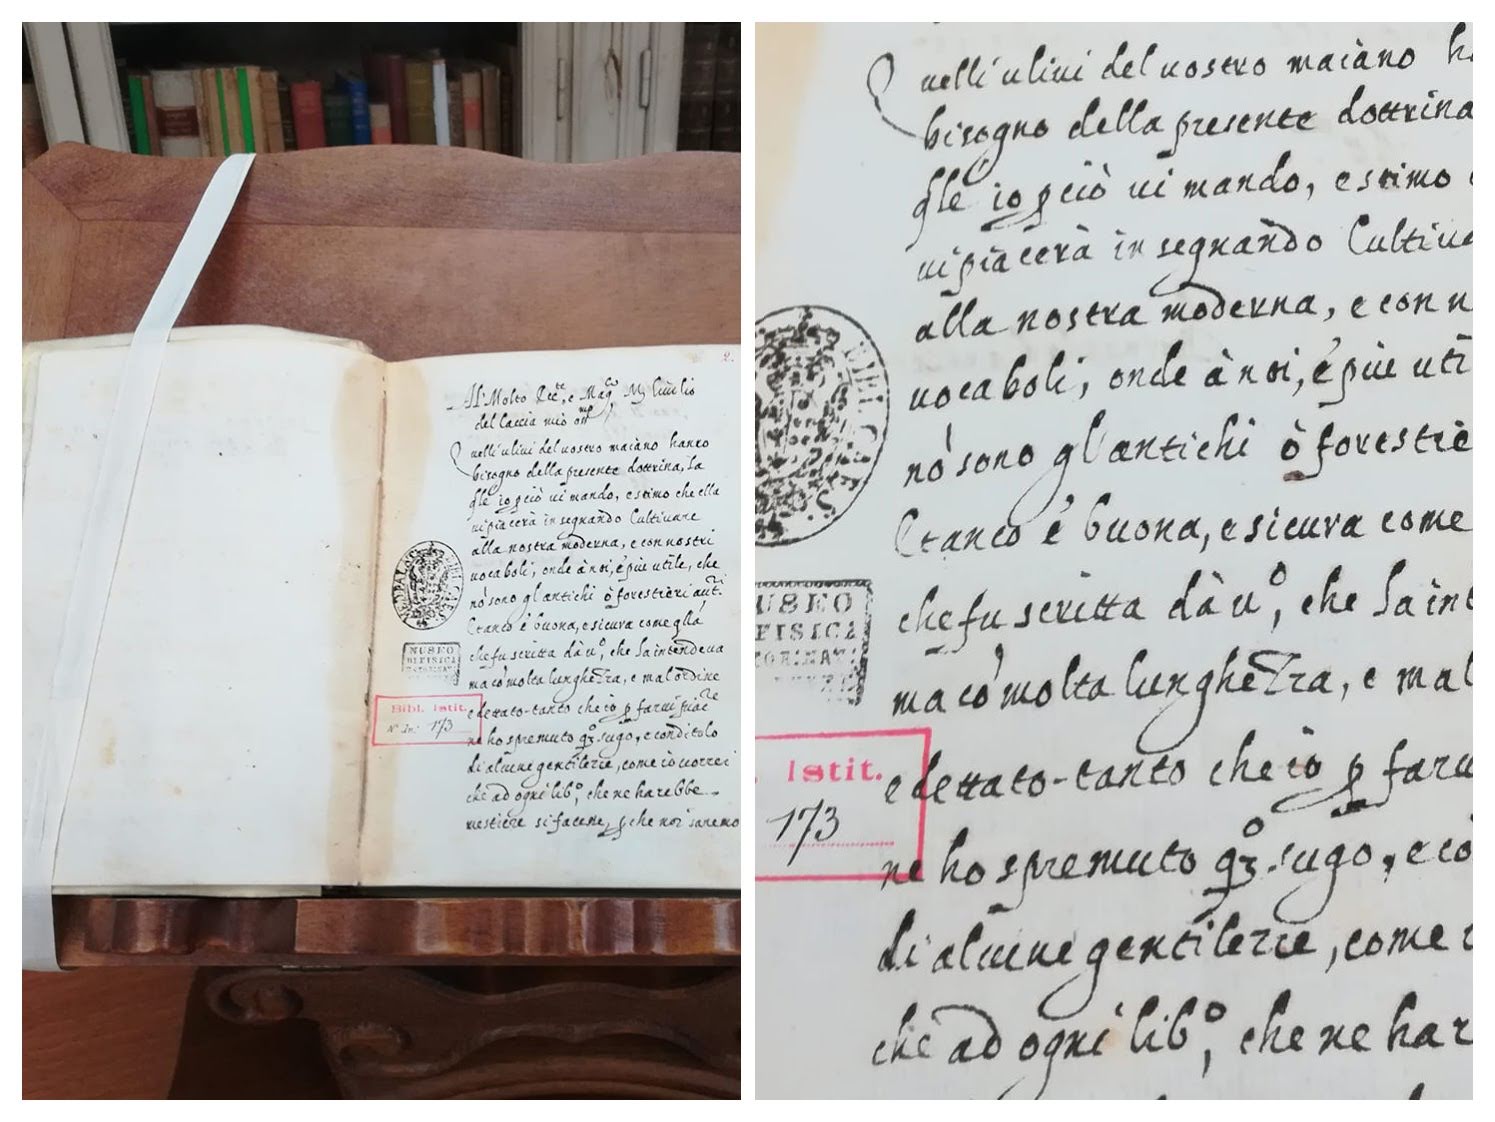 2.
Al Molto Ecc.te, e Mag.co M.
del Caccia mio oss.mo
Quelli ulivi del vostro maiàno hanno
bisogno della presente dottrina, la
q̃le io p ciò vi mando, e stimo che ella
vi piacerà in segnando Cultivare
alla nostra moderna, e con nostri
vocaboli, onde à noi, è più utile, che
nõ sono gl'antichi ò forestieri aut.ri
e tanto è buona, e sicura come
che fu scritta dà u.o, che la intendeva
ma cõ molta lunghezza, e mal'ordine
e dettato-tanto che io p farvi piac.re
ne ho spremuto q.o sugo, e condito lo
di alcune gentilezze, come iò vorrei
chè ad ogni lib.o, che ne harebbe
mestiere si facene, p che noi saremo
PALAT
MUSEO
DI FISICA
Bibl. Istit.
N.º In.º 173
Quelli ulivi del vostro maiàno ha
bisogno della presente dottrina
q̃le io p ciò vi mando, e stimo
vi piacerà in segnando Cultiva
alla nostra moderna, e con n
vocaboli, onde à noi, è più uti
nõ sono gl'antichi ò forestie
e tanto è buona, e sicura come
che fu scritta dà u.o, che la int
ma cõ molta lunghezza, e mal
e dettato-tanto che io p farvi
ne ho spremuto q.o sugo, e cõ
di alcune gentilezze, come i
chè ad ogni lib.o, che ne har
USEO
FISICA
. Istit.
173